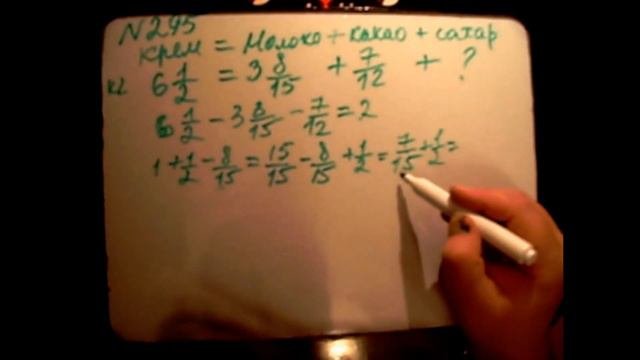 N295
Крем = Молоко + какао + сахар
кг 6 1/2 = 3 8/15 + 7/12 + ?
6 1/2 - 3 8/15 - 7/12 = 2
1 + 1/2 - 8/15 = 15/15 - 8/15 + 1/2 = 7/15 + 1/2 =